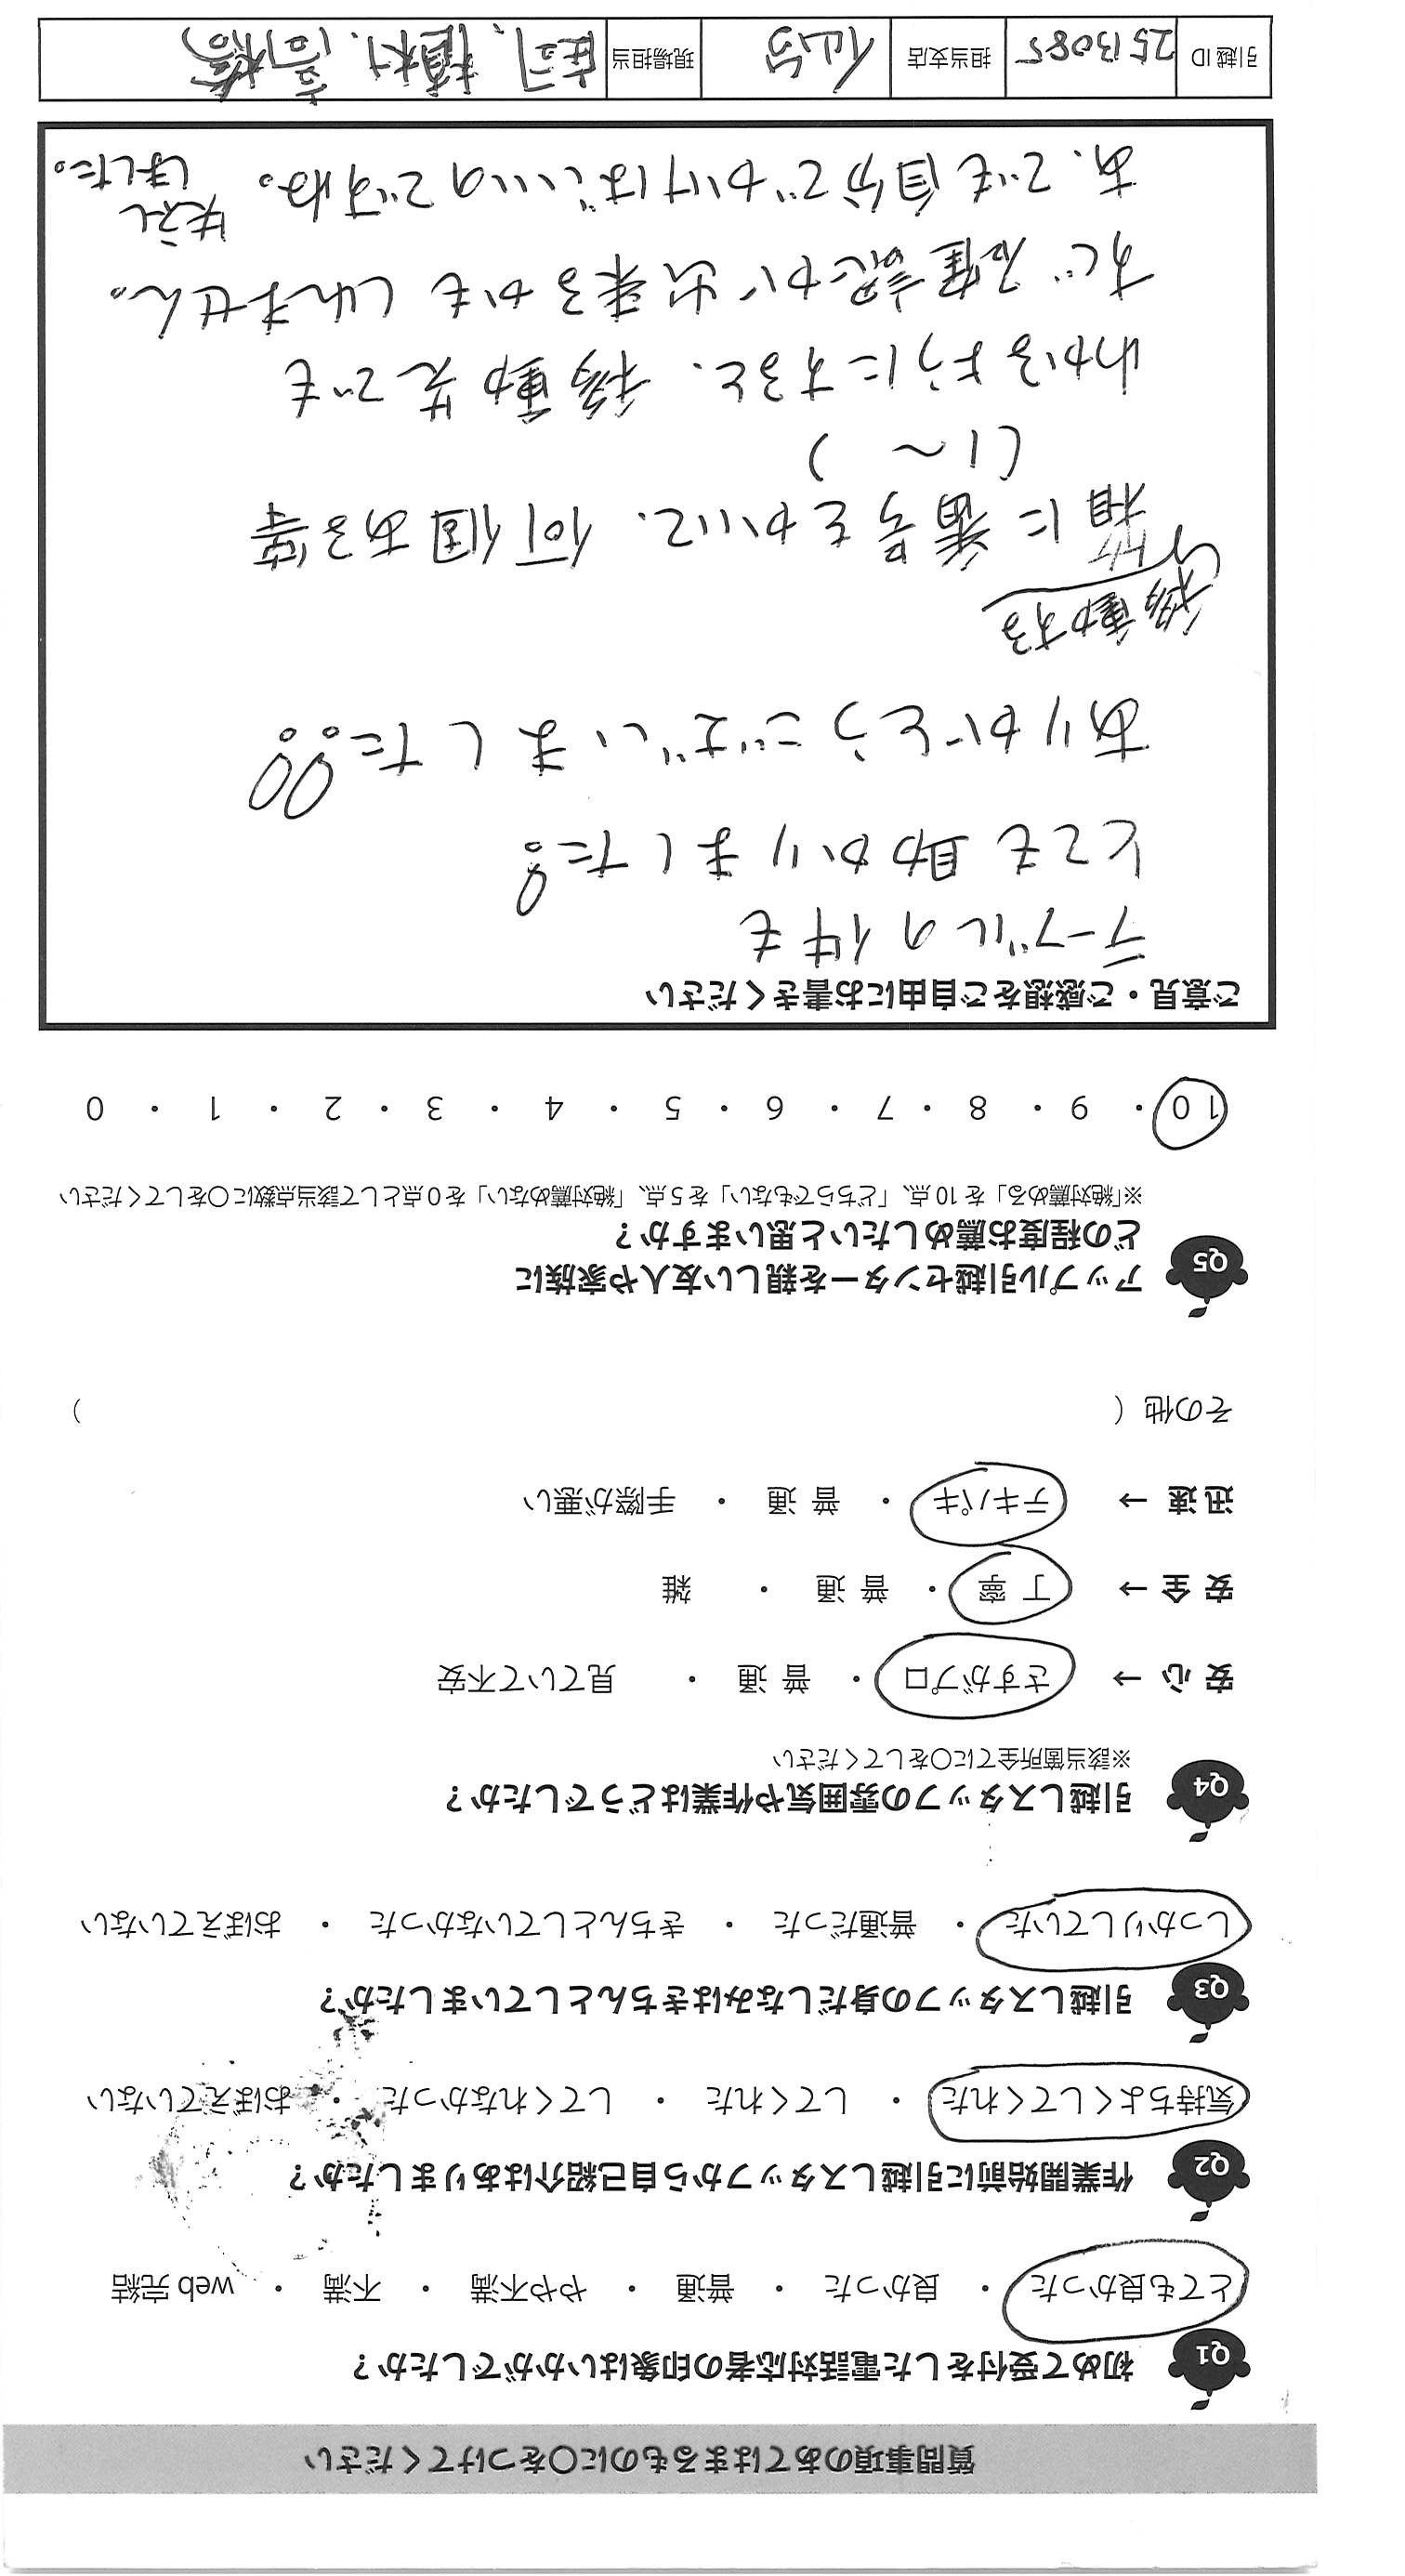 質問事項のあてはまるものに〇をつけてください
Q1 初めて受付をした電話対応者の印象はいかがでしたか？
とても良かった ・ 良かった ・ 普通 ・ やや不満 ・ 不満 ・ web 完結
Q2 作業開始前に引越しスタッフから自己紹介はありましたか？
気持ちよくしてくれた ・ してくれた ・ してくれなかった ・ おぼえていない
Q3 引越しスタッフの身だしなみはきちんとしていましたか？
しっかりしていた ・ 普通だった ・ きちんとしていなかった ・ おぼえていない
Q4 引越しスタッフの雰囲気や作業はどうでしたか？
※該当箇所全てに〇をしてください
安 心 → さすがプロ ・ 普 通 ・ 見ていて不安
安 全 → 丁 寧 ・ 普 通 ・ 雑
迅 速 → テキパキ ・ 普 通 ・ 手際が悪い
その他（ ）
Q5 アップル引越センターを親しい友人や家族に
どの程度お薦めしたいと思いますか？
※「絶対薦める」を 10 点、「どちらでもない」を 5 点、「絶対薦めない」を 0 点として該当点数に〇をしてください
10 ・ 9 ・ 8 ・ 7 ・ 6 ・ 5 ・ 4 ・ 3 ・ 2 ・ 1 ・ 0
ご意見・ご感想をご自由にお書きください
テーブルの件も
とても助かりました!!
ありがとうございました!!
移動する
箱に番号をかいて、何個ある等
(1〜 )
わかるようにすると、移動先でも
すぐ確認が出来るかもしれません。
あ、でも自分でかけばいいのですね。失礼
しました。
引越 ID 2513085 担当支店 仙台 現場担当 庄司、植村、高橋